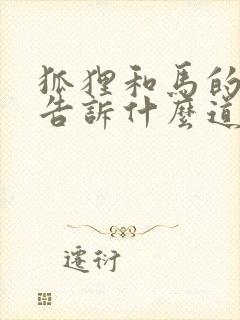 狐狸和馬的
告訴什麼道
遷衍